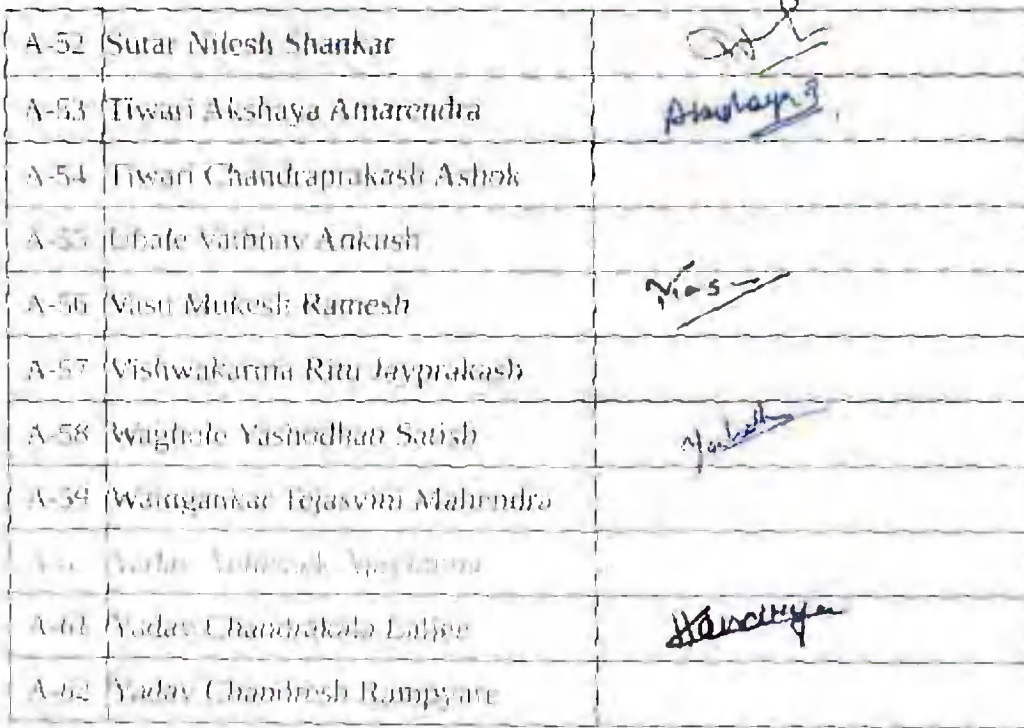 A-52 Sutar Nilesh Shankar
A-53 Tiwari Akshaya Amarendra
A-54 Tiwari Chandraprakash Ashok
A-55 Ubale Vaibhav Ankush
A-56 Vasu Mukesh Ramesh
A-57 Vishwakarma Ritu Jayprakash
A-58 Waghole Yashodhan Satish
A-59 Tejasvini Mahendra
Yadav
A-61 Yadav Chandrakala
A-62 Yadav Chandresh Rampyare